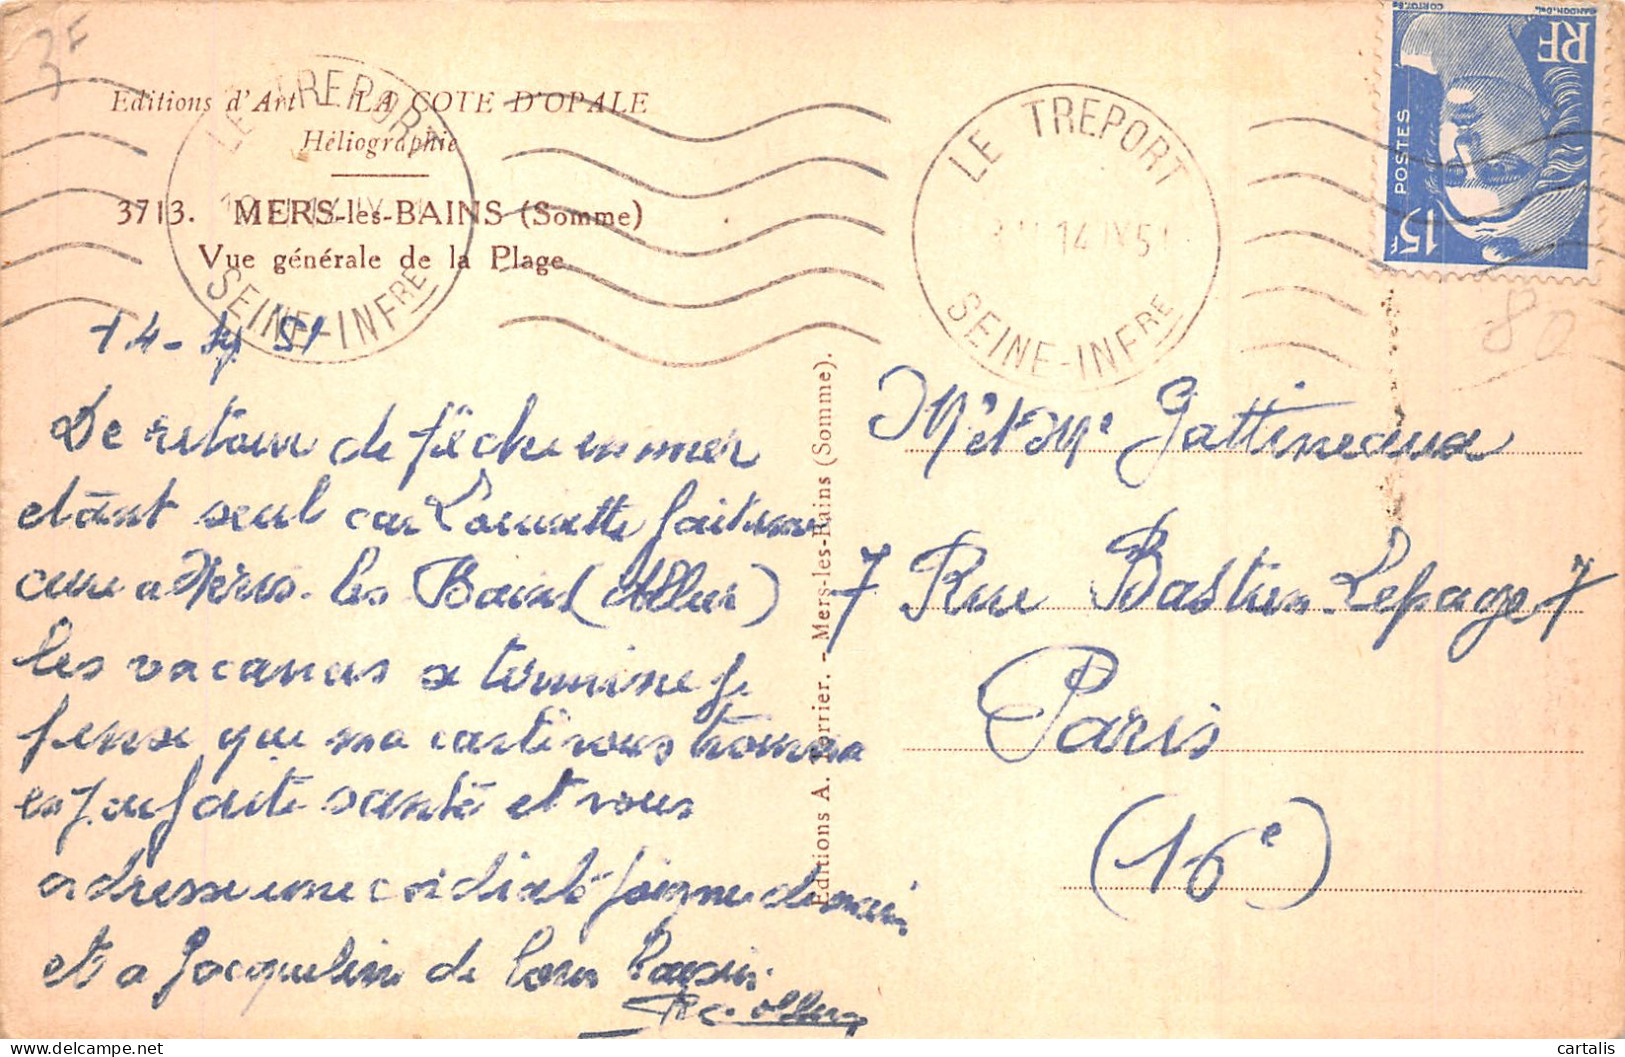 3F
Editions d'Art LA COTE D'OPALE
Héliographie
3713. MERS-les-BAINS (Somme)
Vue générale de la Plage
LE TREPORT
SEINE-INFRE
LE TREPORT
14 IV 51
SEINE-INFRE
CORTOT.Sc GANDON.Del.
RF
POSTES
15F
80
14-IV 51
De retour de pêche en mer
etant seul car Lounette fait une
cure a Mers-les Bains
les vacances se termine je
pense que ma carte vous trouvera
en parfaite santé et vous
adresse une cordiale poigne de main
et a Jacqueline de
Editions A. Perrier. - Mers-les-Bains (Somme).
Mr et Me Gattineaux
7 Rue Bastien Lepage 7
Paris
(16e)
cartalis